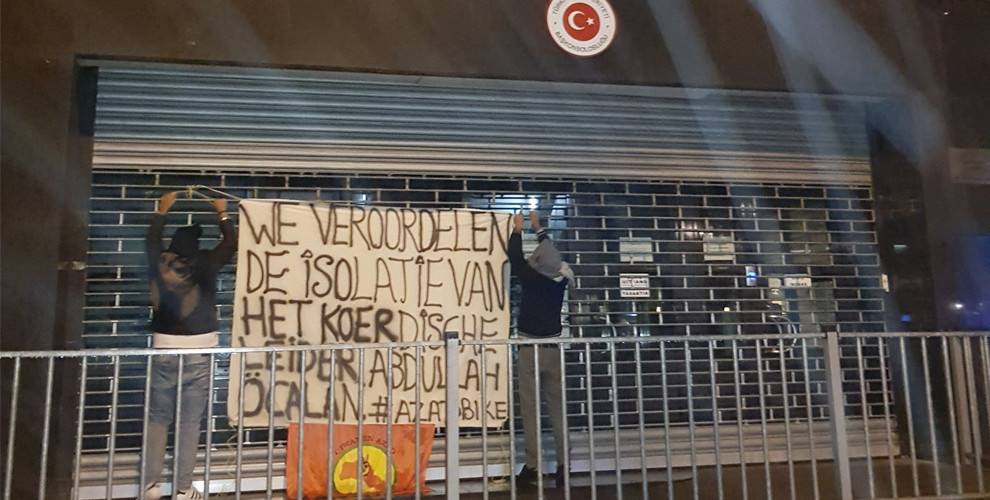 BAŞKONSOLOSLUĞU
WE VEROORDELEN
DE ISOLATIE VAN
HET KOERDISCHE
LEIDER ABDULLAH
ÖCALAN. #AZATOBIKE